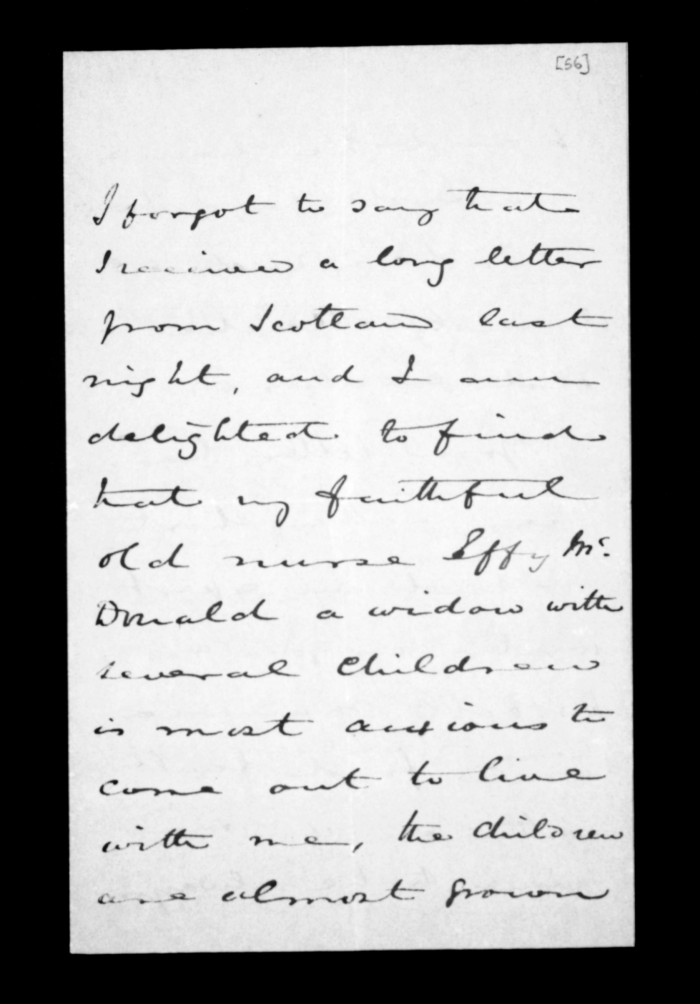 [56]
I forgot to say that
I received a long letter
from Scotland last
night, and I am
delighted to find
that my faithful
old nurse Effy Mc.
Donald a widow with
several children
is most anxious to
come out to live
with me, the children
are almost grown